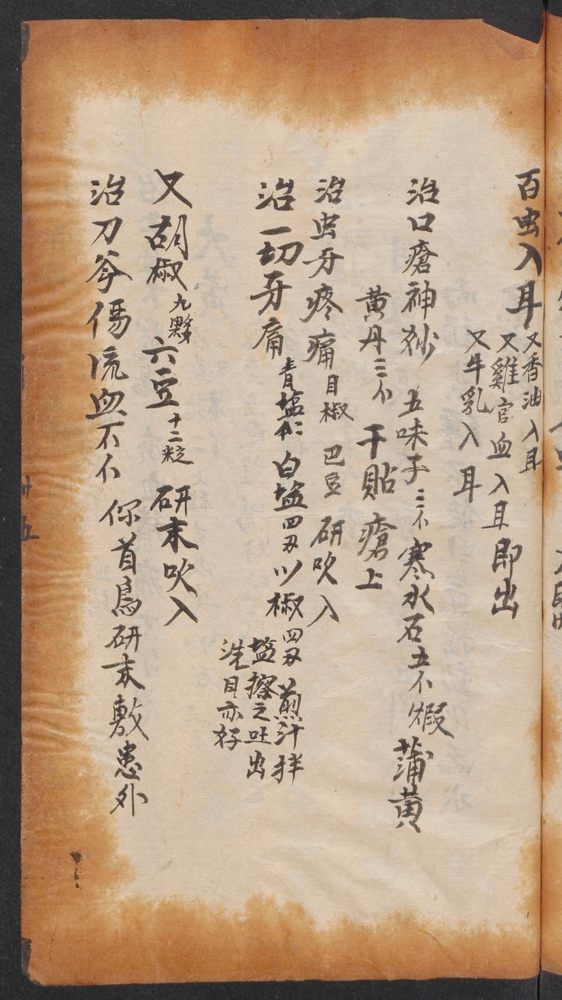 百虫入耳
又香油入耳
又雞官血入耳即出
又牛乳入耳
治口瘡神妙 五味子二个寒水石五个煆蒲黄
黄丹三个干貼瘡上
治虫牙疼痛目椒巴豆研吹入
治一切牙痛
青塩 白塩四刄川椒四刄煎汁拌
塩擦之吐出
洗目亦好
又胡椒九夥六豆十二粒研末吹入
治刀斧傷流血不个 你首烏研末敷患外